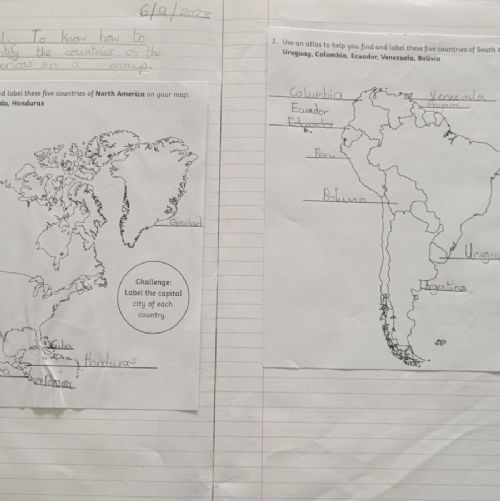 6/9/2023
To know how to
the countries of the
on a map.
d label these five countries of North America on your map.
da, Honduras
Greenland
Challenge:
Label the capital
city of each
country.
Cuba
Honduras
Panama
2. Use an atlas to help you find and label these five countries of South
Uruguay, Colombia, Ecuador, Venezuela, Bolivia
Columbia
Venezuela
Ecuador
Peru
Bolivia
Urugu
Argentina